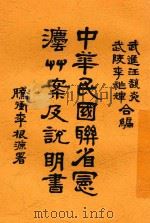 武進汪馥炎
武陵李祚輝
合編
中華民國聯省憲
灋艸案及說明書
騰衝李根源署